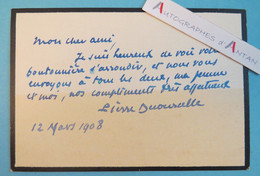 Mon cher ami,
Je suis heureux de voir votre
boutonnière s'arrondir, et nous vous
envoyons à tous les deux, ma femme
et moi, nos compliments très affectueux
Pierre Decourcelle
12 Mars 1908
AUTOGRAPHES
D'ANTAN